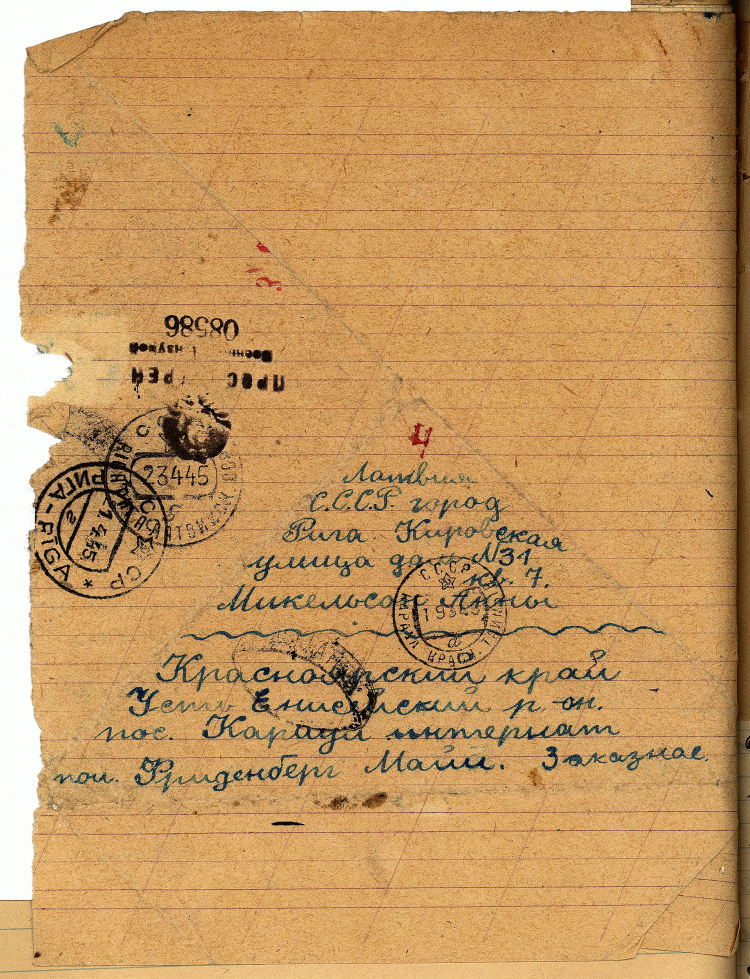 08586
Военной Цензурой
ПРОСМОТРЕНО
4
23445
РИГА-RIGA
1.4.45
СССР
Латвия
С.С.С.Р. город
Рига Кировская
улица дом №31
кв. 7.
Микельсон Анны
СССР
Красноярский край
Усть Енисейский р-он.
пос. Караул интернат
Фриденберг Майи. Заказное.